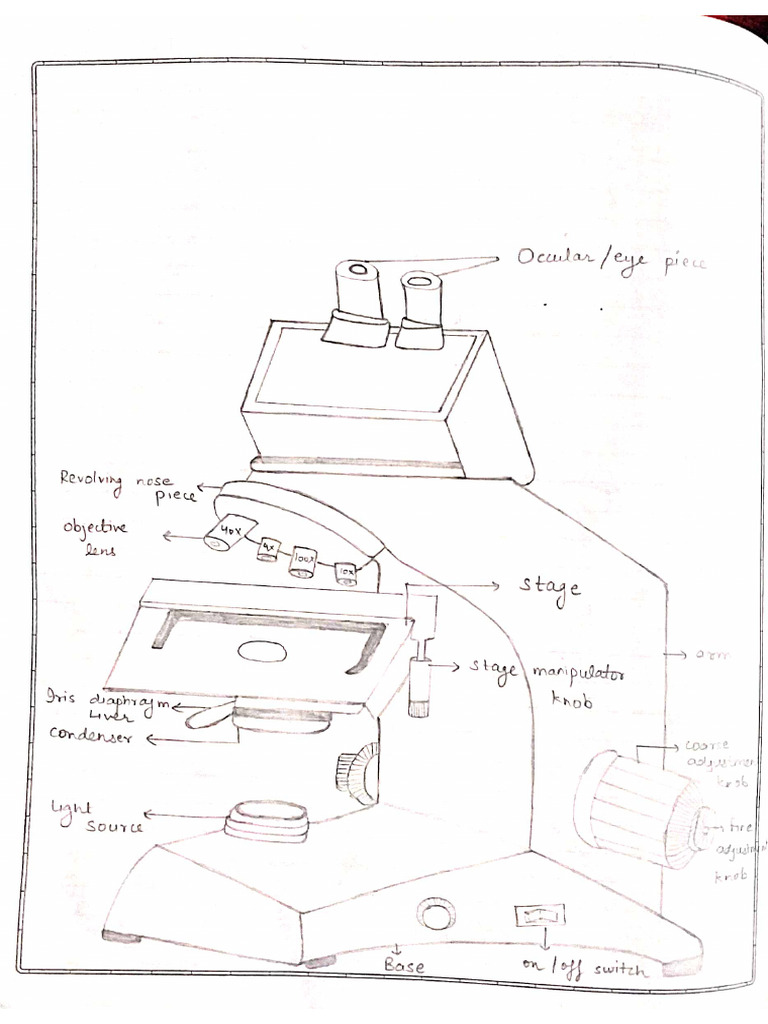 Occular/eye piece
Revolving nose
piece
objective
lens
40x
4x
100x
10x
stage
stage manipulator
knob
arm
Iris diaphragm
liver
Condenser
coarse
adjustment
knob
Light
source
fine
adjustment
knob
Base
on/off switch